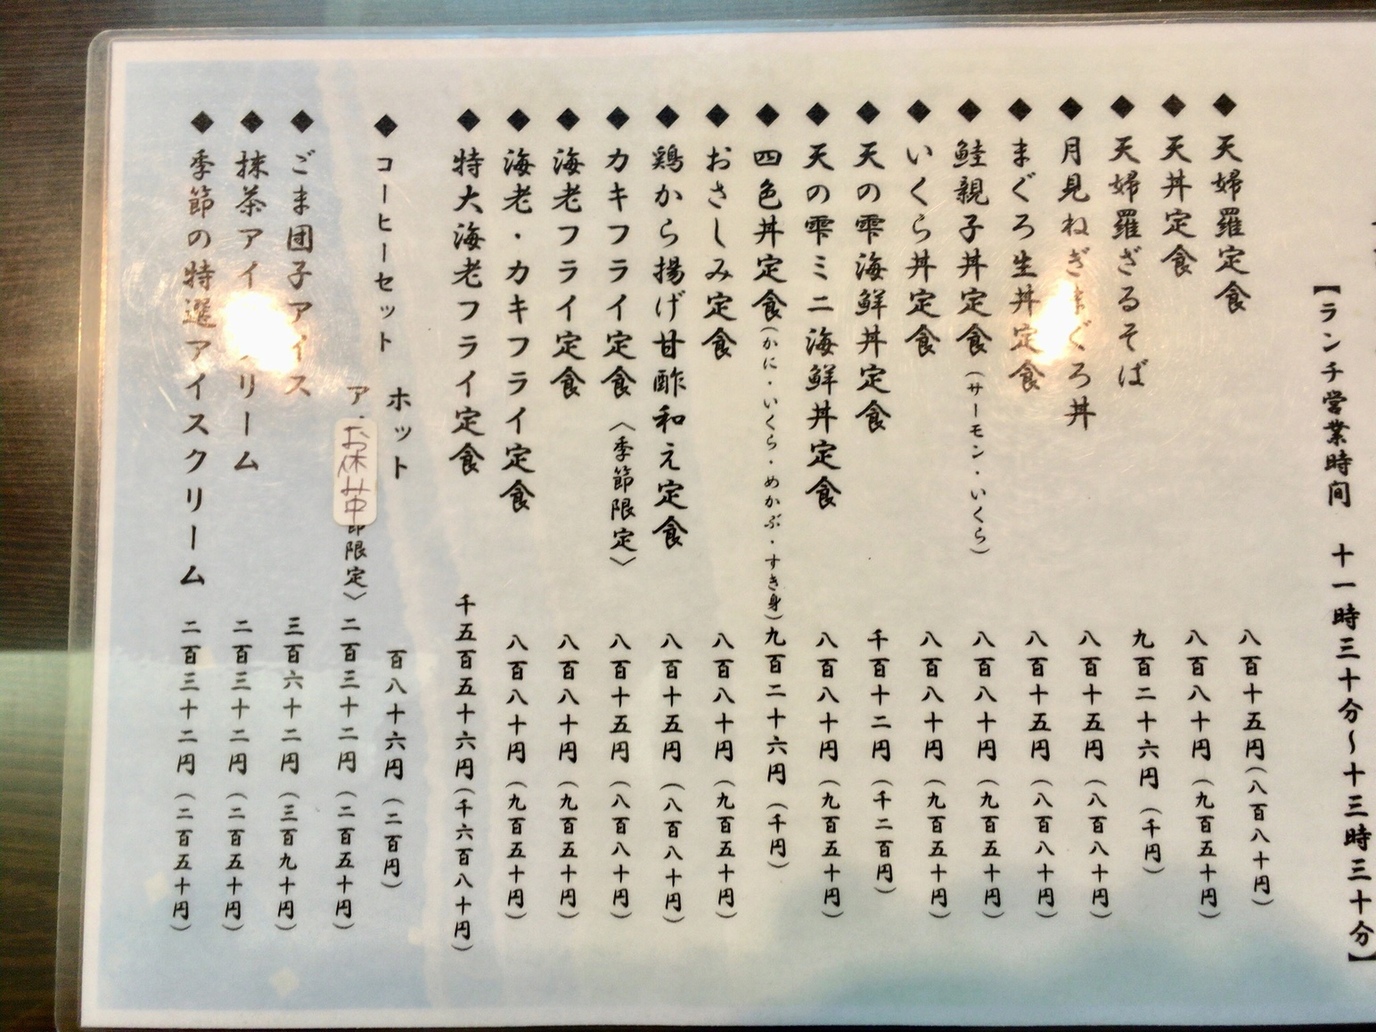 【ランチ営業時间 十一時三十分〜十三時三十分】
◆天婦羅定食 八百十五円(八百八十円)
◆天丼定食 八百八十円(九百五十円)
◆天婦羅ざるそば 九百二十六円(千円)
◆月見ねぎまぐろ丼 八百十五円(八百八十円)
◆まぐろ生丼定食 八百十五円(八百八十円)
◆鮭親子丼定食(サーモン・いくら) 八百八十円(九百五十円)
◆いくら丼定食 八百八十円(九百五十円)
◆天の雫海鮮丼定食 千百十二円(千二百円)
◆天の雫ミニ海鮮丼定食 八百八十円(九百五十円)
◆四色丼定食(かに・いくら・めかぶ・すき身)九百二十六円(千円)
◆おさしみ定食 八百八十円(九百五十円)
◆鶏から揚げ甘酢和え定食 八百十五円(八百八十円)
◆カキフライ定食〈季節限定〉 八百十五円(八百八十円)
◆海老フライ定食 八百八十円(九百五十円)
◆海老・カキフライ定食 八百八十円(九百五十円)
◆特大海老フライ定食 千五百五十六円(千六百八十円)
◆コーヒーセット ホット 百八十六円(二百円)
ア お休み中 節限定〉 二百三十二円(二百五十円)
◆ごま団子アイス 三百六十二円(三百九十円)
◆抹茶アイ リーム 二百三十二円(二百五十円)
◆季節の特選アイスクリーム 二百三十二円(二百五十円)